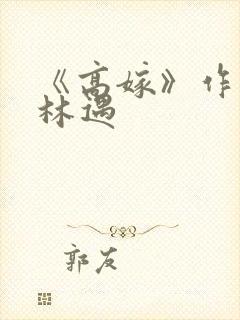 《高嫁》作
林遇
郭友